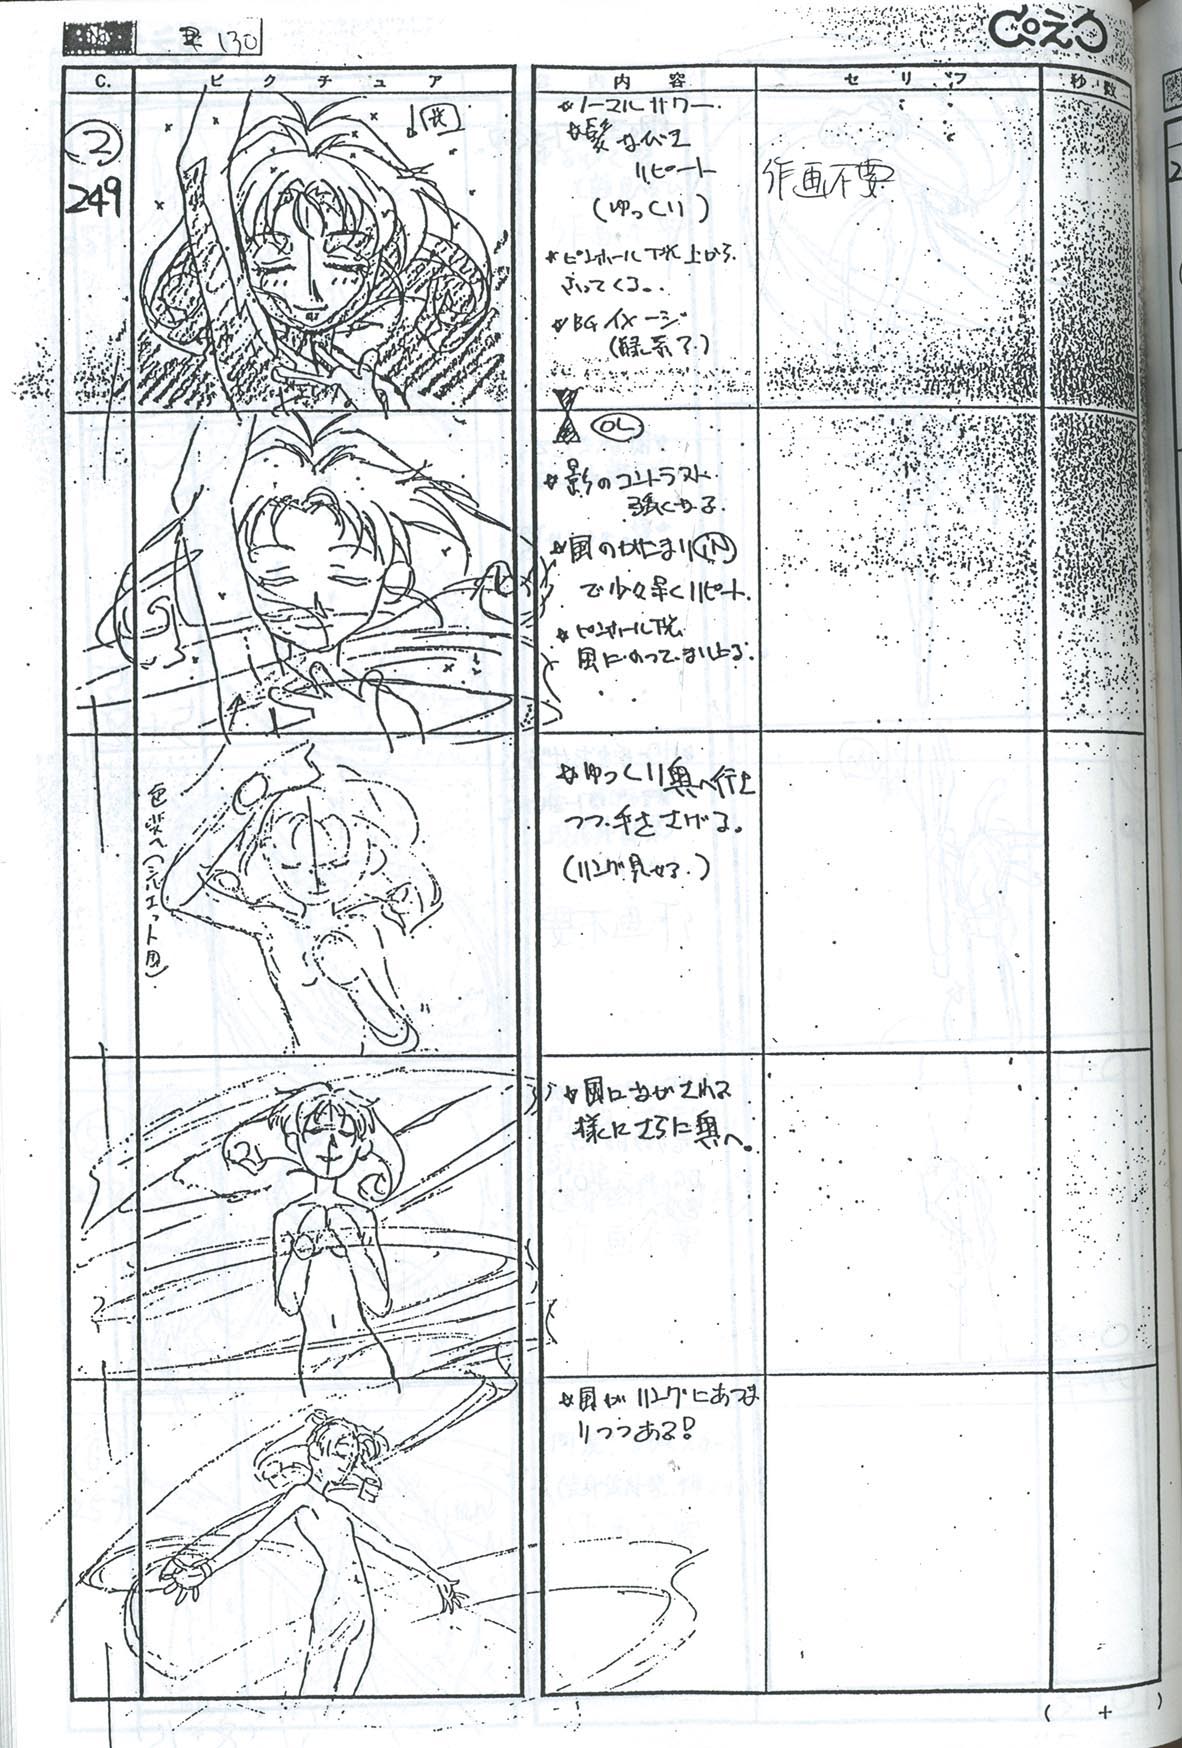 130
ぴえろ
C.
ピクチュア
内容
セリフ
秒数
②
249
*ノーマルカラー.
*髪なびく
リピート
(ゆっくり)
作画不要
*ピンホール下光上から
ふってくる。.
*BGイメージ
(緑系?)
OL
*影のコントラスト
強くする.
*風のかたまりIN
で少々早くリピート.
*ピンホール下光
風にのってまい上る.
色変へ(シルエット風)
*ゆっくり奥へ行き
つつ手をさげる。
(リング見せる.)
*風にながされる
様にさらに奥へ。
*風がリングにあつま
りつつある!
( + )